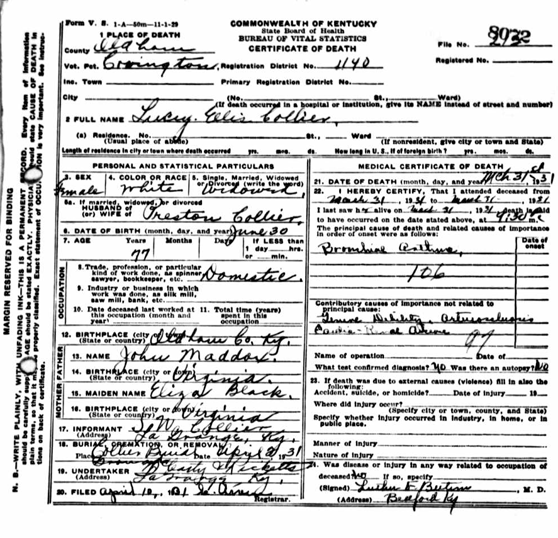 Form V. S. 1-A—50m—11-1-29
COMMONWEALTH OF KENTUCKY
State Board of Health
BUREAU OF VITAL STATISTICS
CERTIFICATE OF DEATH
1 PLACE OF DEATH
County Oldham
File No. 8932
Vot. Pct. Covington, Registration District No. 1140
Registered No.
Inc. Town Primary Registration District No.
City (No. St., Ward)
(If death occurred in a hospital or institution, give its NAME instead of street and number)
2 FULL NAME Lucy Ellis Collier
(a) Residence. No. St., Ward
(Usual place of abode) (If nonresident, give city or town and State)
Length of residence in city or town where death occurred yrs. mos. ds. How long in U. S., if of foreign birth? yrs. mos. ds.
MARGIN RESERVED FOR BINDING
PERSONAL AND STATISTICAL PARTICULARS
3. SEX Female
4. COLOR OR RACE White
5. Single, Married, Widowed or Divorced (write the word) Widowed
5a. If married, widowed, or divorced
HUSBAND of
(or) WIFE of Preston Collier
6. DATE OF BIRTH (month, day, and year) June 30
7. AGE Years 77 Months Days If LESS than 1 day hrs. or min.
OCCUPATION
8. Trade, profession, or particular kind of work done, as spinner, sawyer, bookkeeper, etc. Domestic
9. Industry or business in which work was done, as silk mill, saw mill, bank, etc.
10. Date deceased last worked at this occupation (month and year)
11. Total time (years) spent in this occupation
12. BIRTHPLACE (city or town) Oldham Co. Ky.
(State or country)
FATHER
13. NAME John Maddox
14. BIRTHPLACE (city or town) Virginia
(State or country)
MOTHER
15. MAIDEN NAME Eliza Black
16. BIRTHPLACE (city or town) Virginia
(State or country)
17. INFORMANT J. W. Collier
(Address) La Grange, Ky.
18. BURIAL, CREMATION, OR REMOVAL
Place Date April 2 1931
19. UNDERTAKER
(Address) La Grange Ky
20. FILED April 10, 1931
Registrar.
MEDICAL CERTIFICATE OF DEATH
21. DATE OF DEATH (month, day, and year) Mch 31st 1931
22. I HEREBY CERTIFY, That I attended deceased from
March 31 1931 to March 31 1931
I last saw her alive on March 31, 1931 death is said
to have occurred on the date stated above, at
The principal cause of death and related causes of importance in order of onset were as follows:
Date of onset
Bronchial Asthma,
106
Contributory causes of importance not related to principal cause:
97
Name of operation Date of
What test confirmed diagnosis? No Was there an autopsy? No
23. If death was due to external causes (violence) fill in also the following:
Accident, suicide, or homicide? Date of injury 19
Where did injury occur?
(Specify city or town, county, and State)
Specify whether injury occurred in industry, in home, or in public place.
Manner of injury
Nature of injury
24. Was disease or injury in any way related to occupation of deceased? No If so, specify
(Signed) M. D.
(Address) Bedford Ky